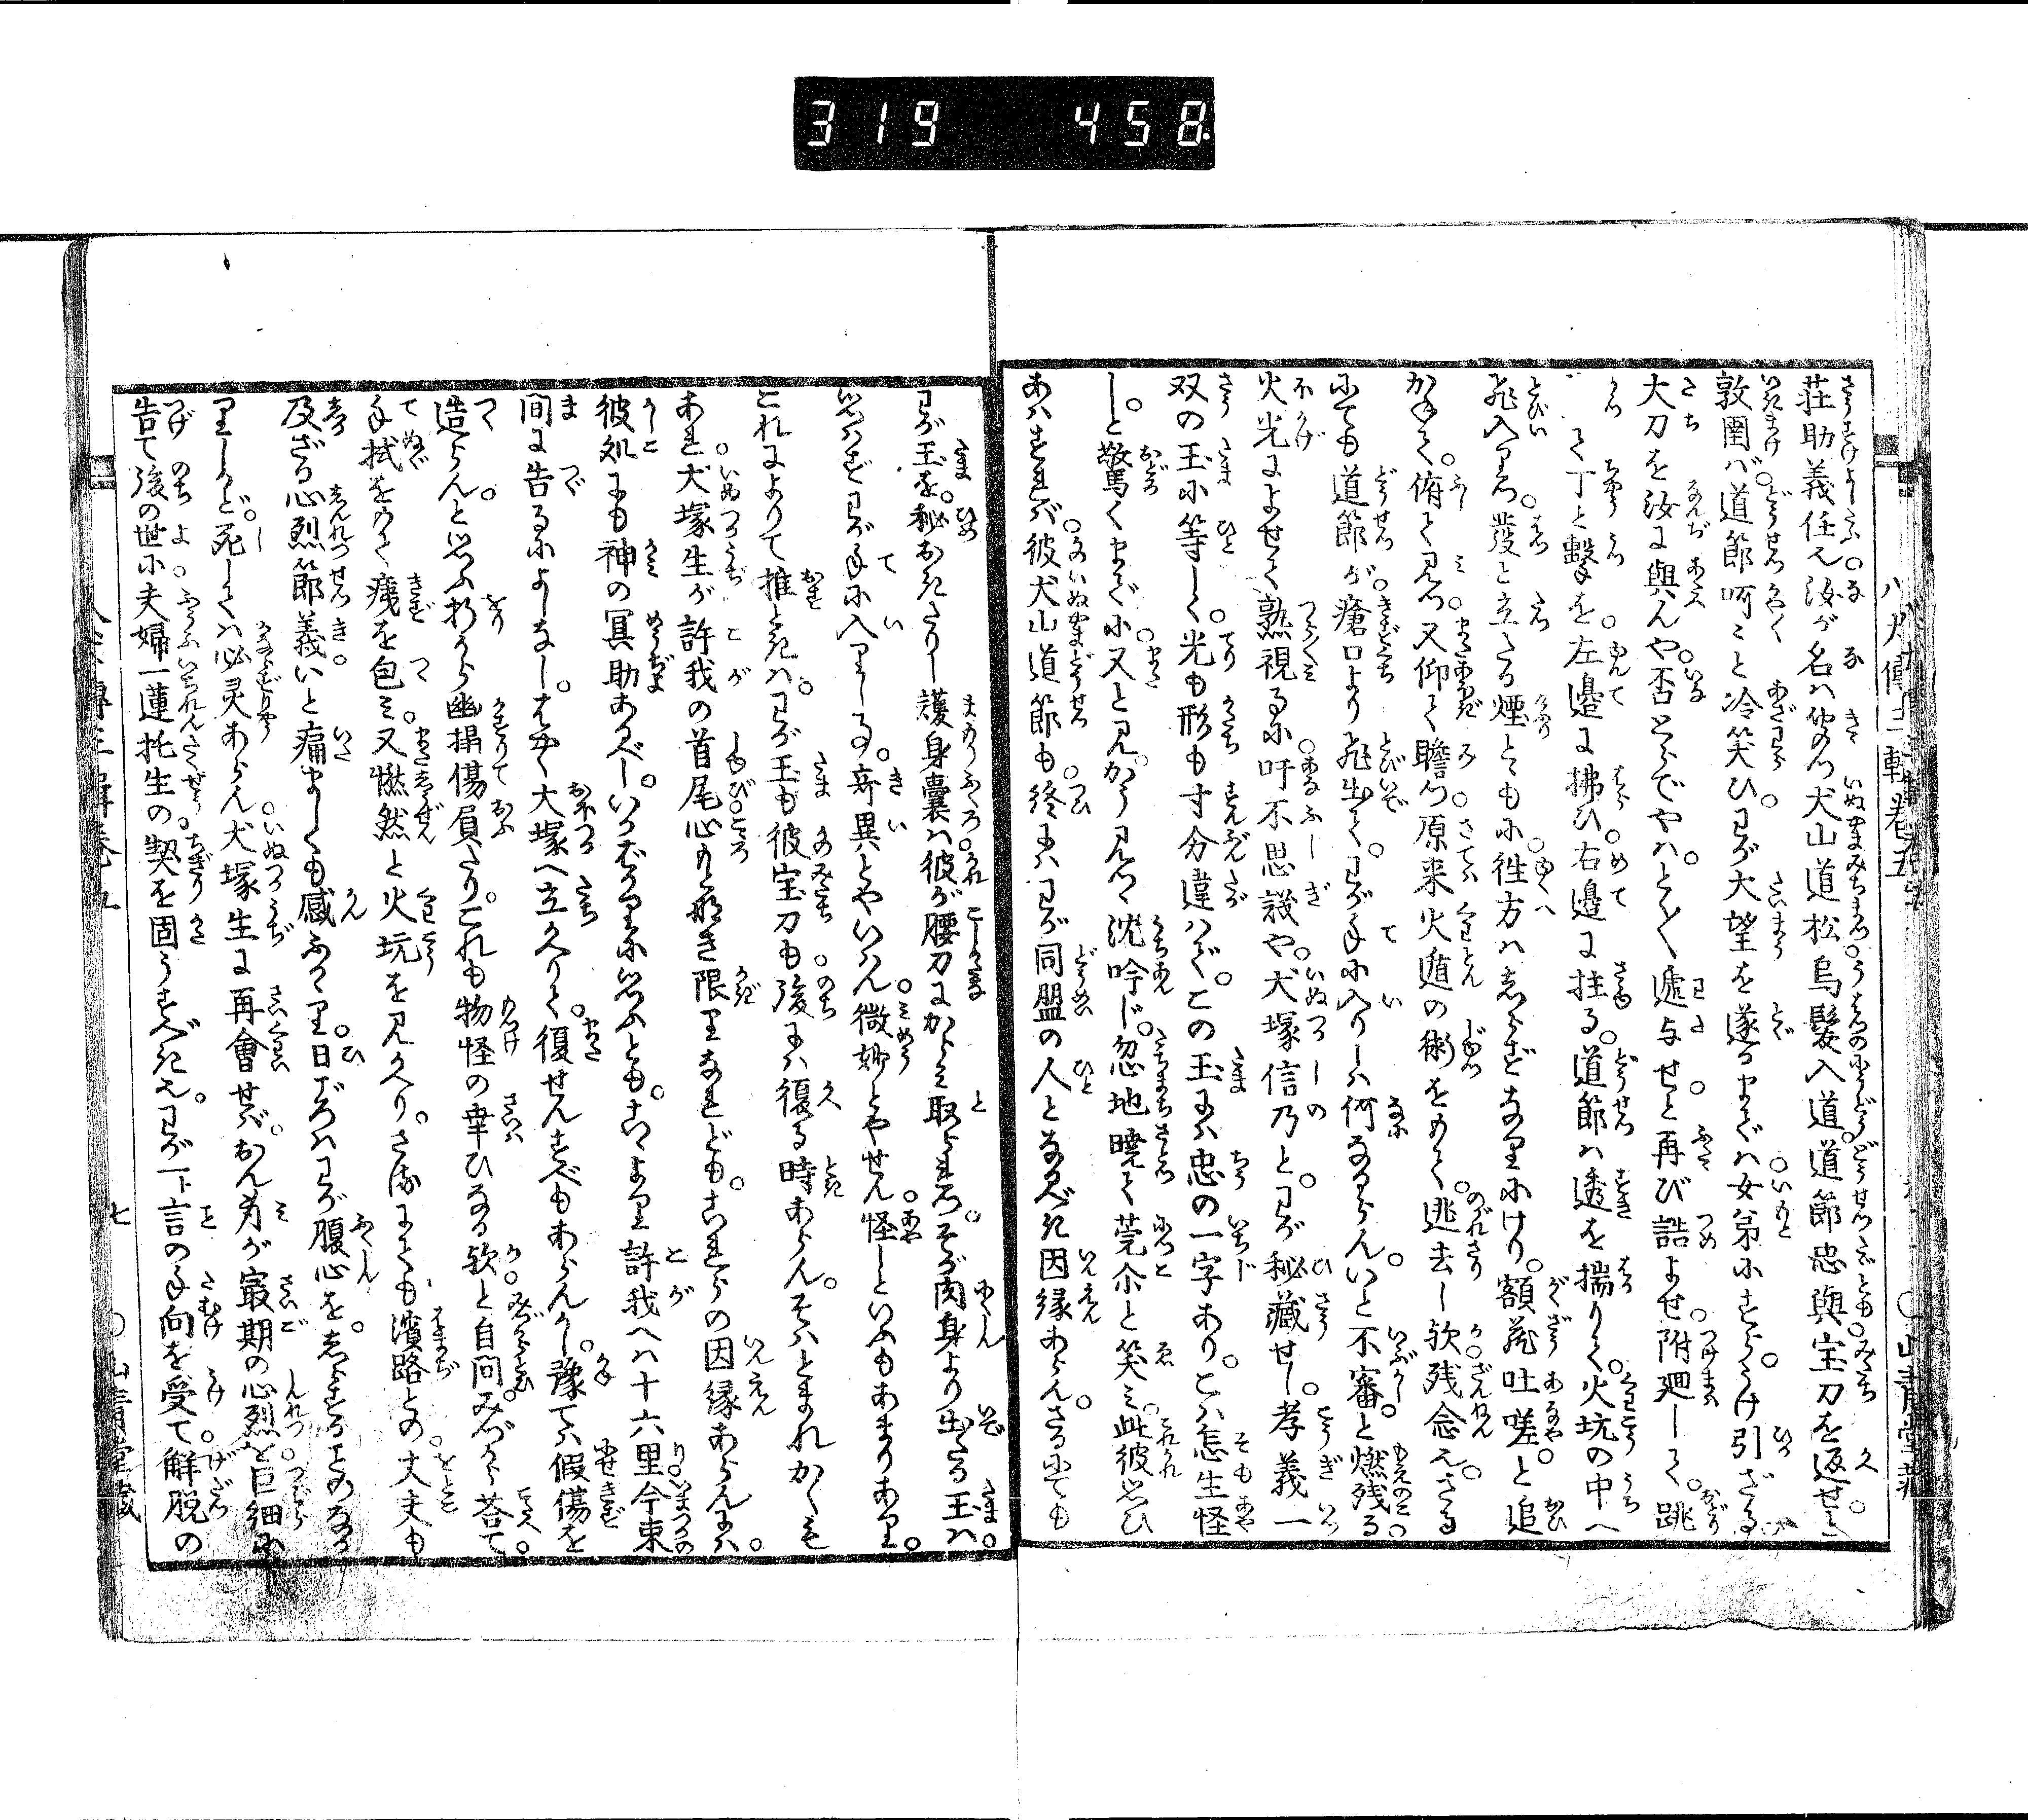 319 458
八犬傳三輯卷五
○山青堂藏
荘助義任也。汝が名は聞つ犬山道松烏髪入道道節忠與宝刀を返せと
敦圉ば。道節呵々と冷笑ひ。わが大望を遂るまでは女弟にすらうけ引ざる
大刀を汝に與んや否とらでやは。とく〳〵遞与せと再び詰よせ。附廻して。跳
かゝつて丁と撃を。左邊に拂ひ。右邊に拄る。道節は透を揣りて。火坑の中へ
飛入りつ。發と立たる煙とともに。徃方はしらずなりにけり。額藏吐嗟。と追
かねて。俯て見つ。又仰て瞻つ。原来火遁の術をもて。逃去し歟残念也。さる
にても道節が。瘡口より飛出て。わが手に入りしは何なるらん。いと不審。と燃残る
火光によせて熟視るに。吁不思議や。犬塚信乃と。わが秘藏せし。孝義一
双の玉に等しく。光も形も寸分違はず。この玉には忠の一字あり。こは怎生怪
し。と驚くまでに。又と見かう見つゝ沈吟じ。忽地曉て莞尓と笑み。此彼思ひ
あはすれば彼犬山道節も。終にはわが同盟の人となるべき因縁あらん。さるにても
わが玉を。秘おきたりし護身嚢は。彼が腰刀にからみ取られつ。そが肉身より出たる玉は。
思はずわが手に入りし事。奇異とやいはん。微妙とやせん。怪しといふもあまりあり。
これによりて推ときは。わが玉も彼宝刀も。後には復る時あらん。そはとまれかくも
あれ。犬塚生が許我の首尾心もとなき限りなれども。これらの因縁あらんには。
彼処にも神の冥助あるべし。いかばかりに思ふとも。こゝより許我へは十六里。今東
間に告るによしなし。はやく大塚へ立かへりて。復せんすべもあらんかし。豫ては假傷を
造らんと思ふ折から幽搨傷負たり。これも物怪の幸ひなる歟。と自問みづから荅て。
手拭をもて痍を包み。又憮然と火坑を見かへり。さるにても濱路どの。丈夫も
及ざる心烈節義。いと痛ましくも感ふかり。日ごろはわが腹心を。しらするよしのなか
りしかど。死しては必灵あらん。犬塚生に再會せば。おん身が最期の心烈を巨細に
告て。後の世に夫婦一蓮托生の。契を固うすべき也。わが一下言の手向を受て。解脱の
八犬傳三輯卷五
七
○山青堂藏